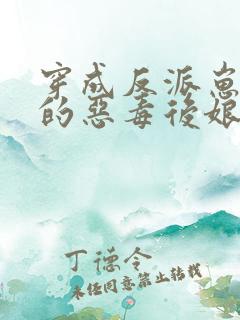 穿成反派崽
的惡毒後娘
丁德令
未经同意禁止转载